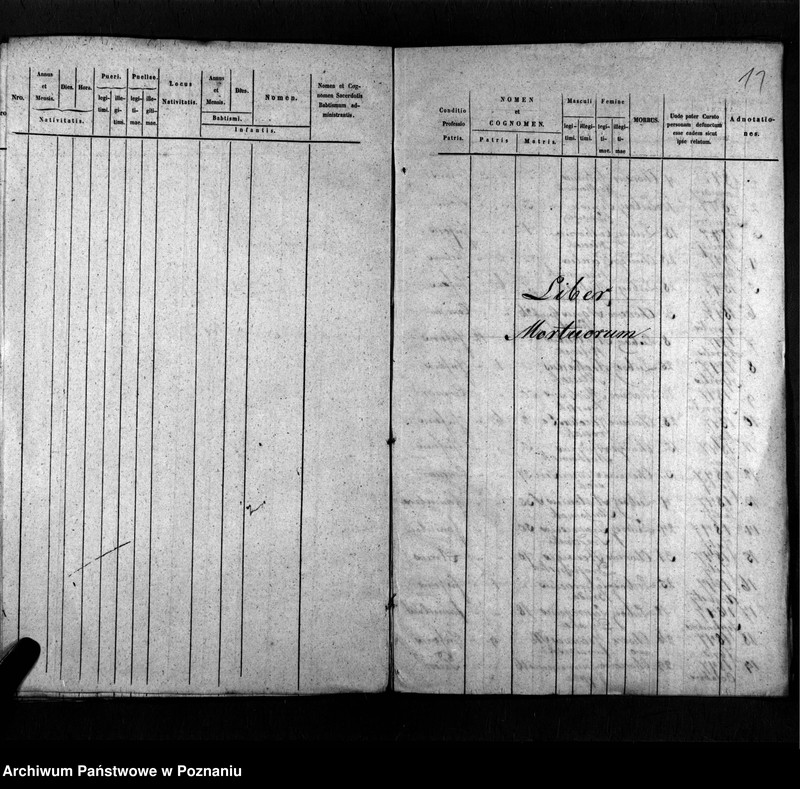 Nro.
Annus
et
Mensis.
Dies.
Hora.
Nativitatis.
Pueri.
legi-
timi.
ille-
gi-
timi.
Puellae.
legi-
ti-
mae.
ille-
giti-
mae.
Locus
Nativitatis.
Annus
et
Mensis.
Dies.
Babtismi.
Nomen.
Infantis.
Nomen et Cog-
nomen Sacerdotis
Babtismum ad-
ministrantis.
17
Conditio
Professio
Patris.
NOMEN
et
COGNOMEN.
Patris
Matris.
Masculi
legi-
timi.
illegi-
timi.
Femine
legi-
ti-
mae.
illegi-
ti-
mae
MORBUS.
Unde pater Curato
personam defunctam
esse eadem sicut
ipse relatum.
Adnotatio-
nes.
Liber
Mortuorum.
Archiwum Państwowe w Poznaniu